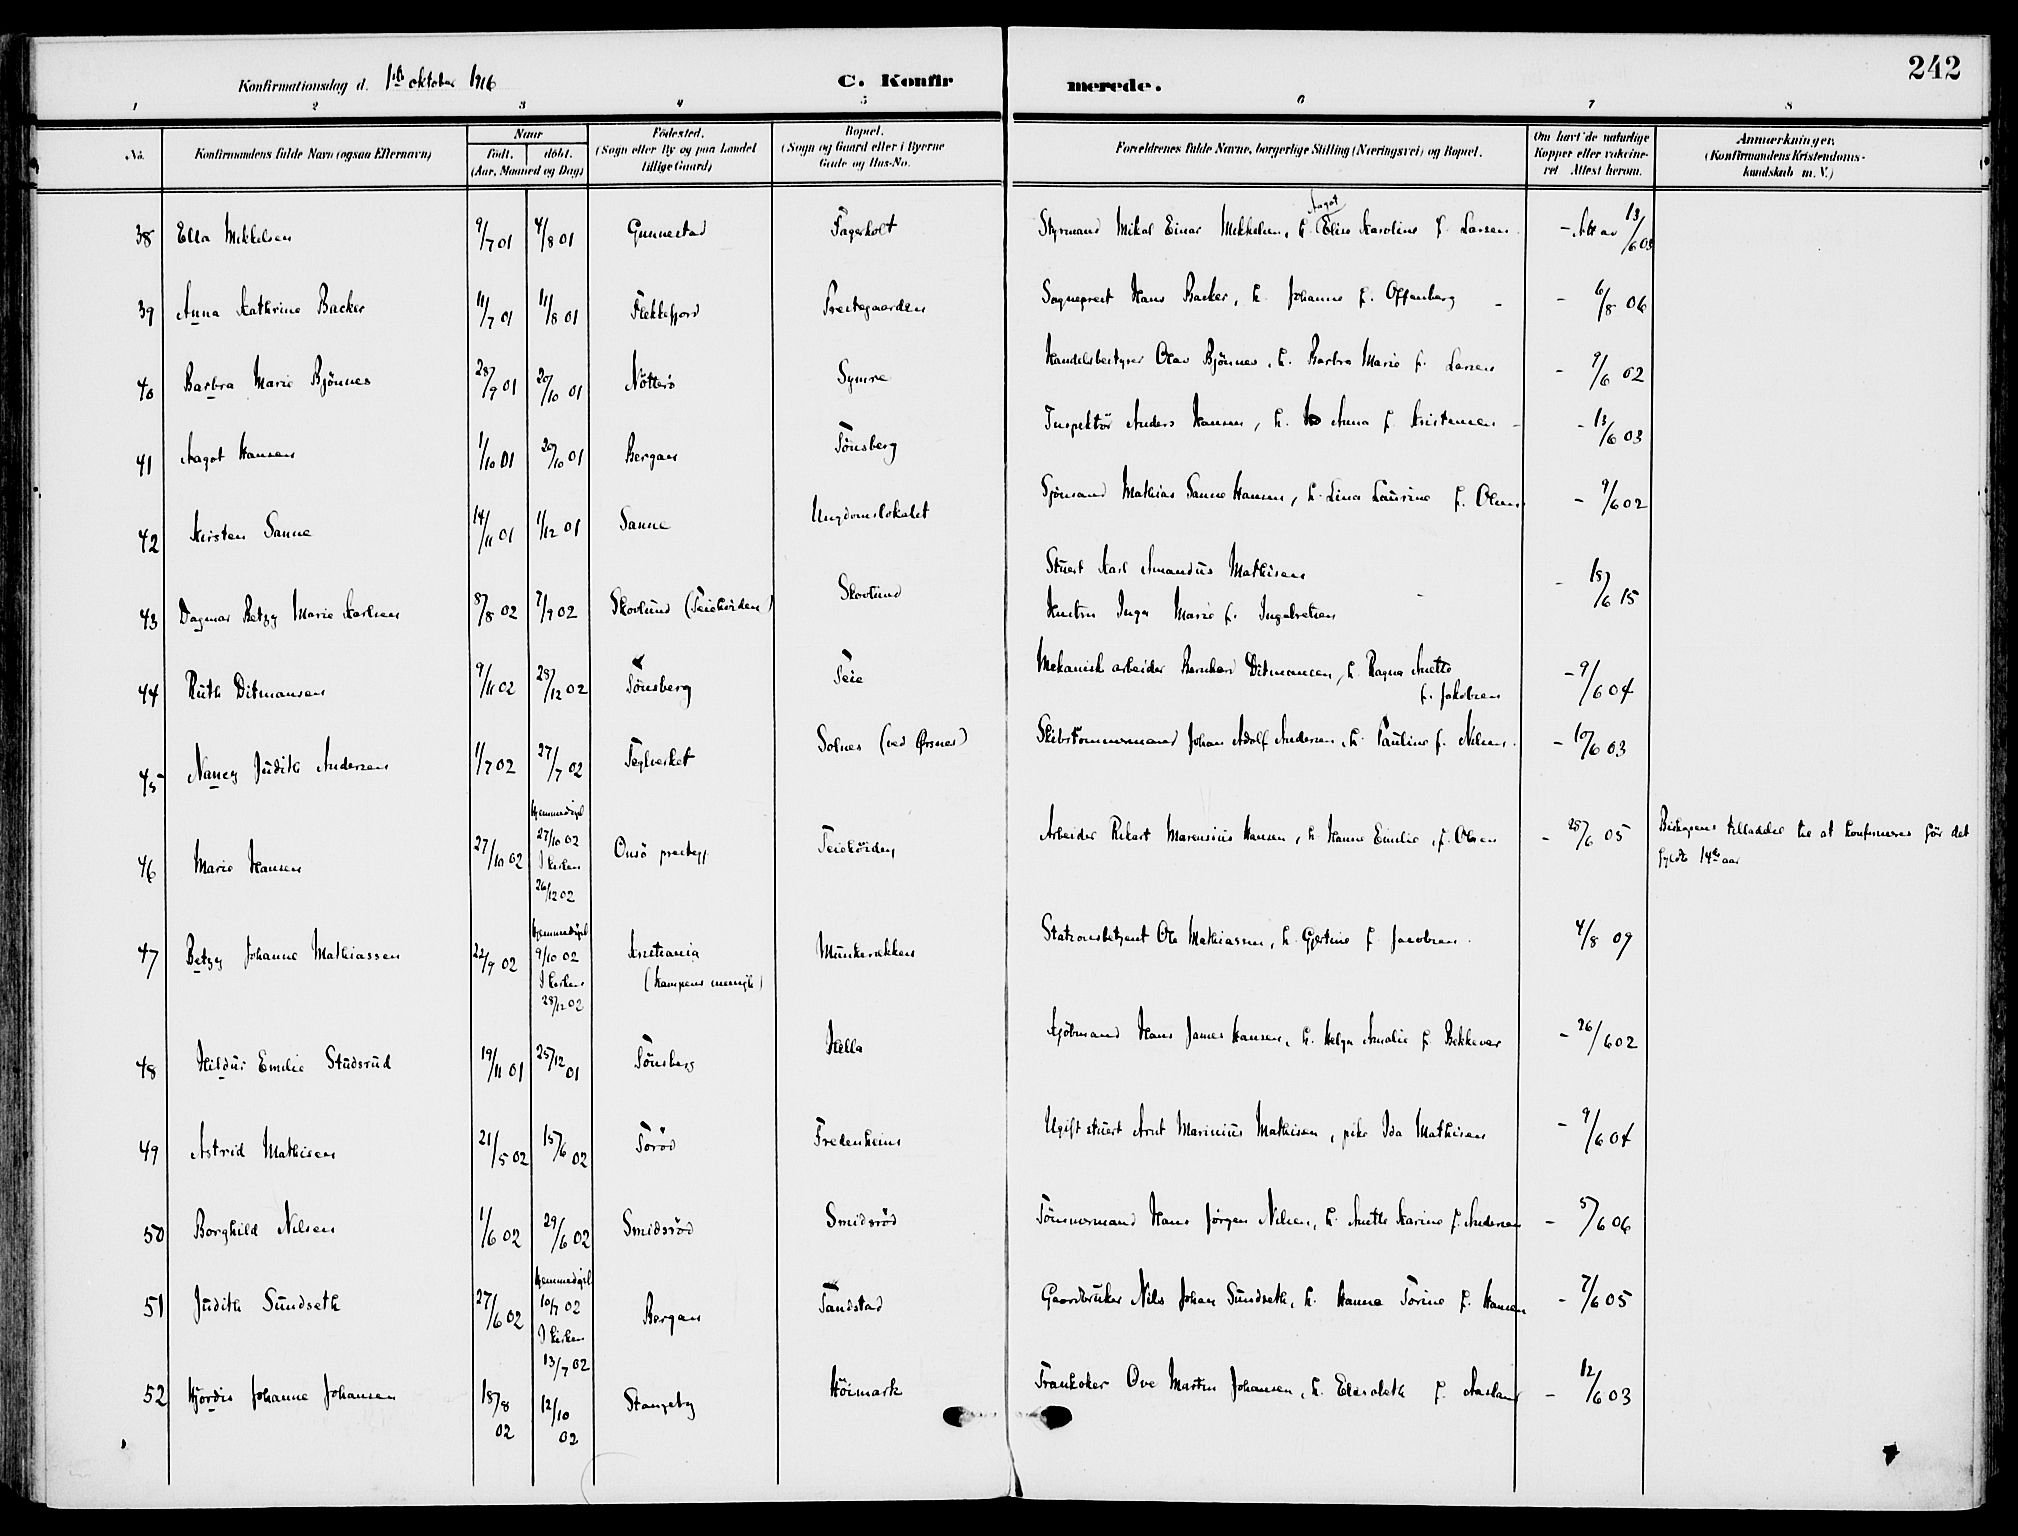 242
Konfirmationsdag d. 1ste oktober 1916
C. Konfirmerede.
1 2 3 4 5 6 7 8
No. Konfirmandens fulde Navn (ogsaa Efternavn) Naar født. døbt. (Aar, Maaned og Dag) Fødested. (Sogn eller By og paa Landet tillige Gaard) Bopæl. (Sogn og Gaard eller i Byerne Gade og Hus-No. Forældrenes fulde Navne, borgerlige Stilling (Næringsvei) og Bopæl. Om havt de naturlige Kopper eller vakcineret Attest herom. Anmærkninger. (Konfirmandens Kristendomskundskab m. V.)
Aagot
38 Ella Mikkelsen 9/7 01 4/8 01 Gunnestad Fagerholt Styrmand Mikal Einar Mikkelsen, h. Elise Karoline f. Larsen - Att av 13/6 03
39 Anna Kathrine Backer 11/7 01 11/8 01 Flekkefjord Prestegaarden Sogneprest Hans Backer, h. Johanne f. Offenberg - 6/8 06
40 Barbra Marie Bjönnes 28/9 01 20/10 01 Nötterö Symre Handelsbestyrer Olav Bjönnes, h. Barbra Marie f. Larsen - 9/6 02
41 Aagot Hansen 1/10 01 20/10 01 Bergan Tönsberg Inspektör Anders Hansen, h. Anna f. Kristensen - 13/6 03
42 Kirsten Sanne 14/11 01 1/12 01 Sanne Ungdomslokalet Sjömand Mathias Sanne Hansen, h. Lina Laurine f. Olsen - 9/6 02
43 Dagmar Betzy Marie Karlsen 8/8 02 7/9 02 Skovlund (Teiehöiden) Skovlund Stuert Karl Amandus Mathisen - 18/6 15
Hustru Inga Marie f. Ingebretsen
44 Ruth Ditmansen 9/11 02 28/12 02 Tönsberg Teie Mekanisk arbeider Bernhard Ditmansen, h. Ragna Anette f. Jakobsen - 9/6 04
45 Nancy Judith Andersen 1/7 02 27/7 02 Teglverket Solnes (ved Ørsnes) Skibstömmermand Johan Adolf Andersen, h. Pauline f. Nilsen - 10/6 03
46 Marie Hansen 27/10 02 Hjemmedöpt 27/10 02 I kirken 26/12 02 Onsö prestegj. Teiehöiden Arbeider Rikart Marensius Hansen, h. Hanna Emilie, f. Olsen - 28/6 05 Biskopens tilladelse til at konfirmeres för det fyldte 14de aar
47 Betzy Johanne Mathiassen 22/9 02 Hjemmedöpt 9/10 02 I kirken 28/12 02 Kristiania (Kampens menigh) Munkerekken Stationsbetjent Ole Mathiassen, h. Gjertine f. Jacobsen 4/8 09
48 Hildur Emilie Studsrud 19/11 01 25/12 01 Tönsberg Hella Kjöbmand Hans James Hansen, h. Helga Amalie f. Bekkevar - 26/6 02
49 Astrid Mathisen 21/5 02 15/6 02 Toröd Fredenheim Ugift stuert Arnt Marinius Mathisen, pike Ida Mathisen - 9/6 04
50 Borghild Nilsen 1/6 02 29/6 02 Smidsröd Smidsröd Tömmermand Hans Jörgen Nilsen, h. Anette Karine f. Andersen - 5/6 06
51 Judith Sundseth 27/6 02 Hjemmedöpt 10/7 02 I kirken 13/7 02 Bergan Tandstad Gaardbruker Nils Johan Sundseth, h. Hanna Torine f. Hansen - 7/6 05
52 Hjördis Johanne Johansen 18/8 02 12/10 02 Stangeby Höimark Trankoker Ove Martin Johansen, h. Elisabeth f. Aasland - 12/6 03